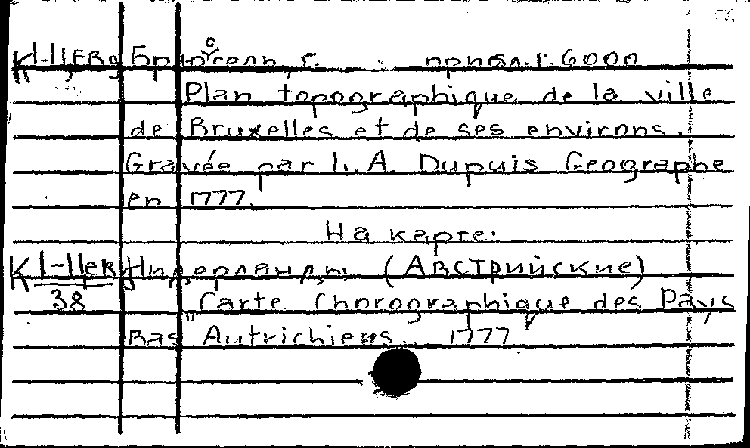 К 1-Нерд Брюссель, г. прибл. 1:6000
Plan topographique de la ville
de Bruxelles et de ses environs.
Gravée par L. A. Dupuis Geographe
en 1777.
На карте:
Нидерланды (Австрийские)
38 "Carte Chorographique des Pays
Bas Autrichiens 1777